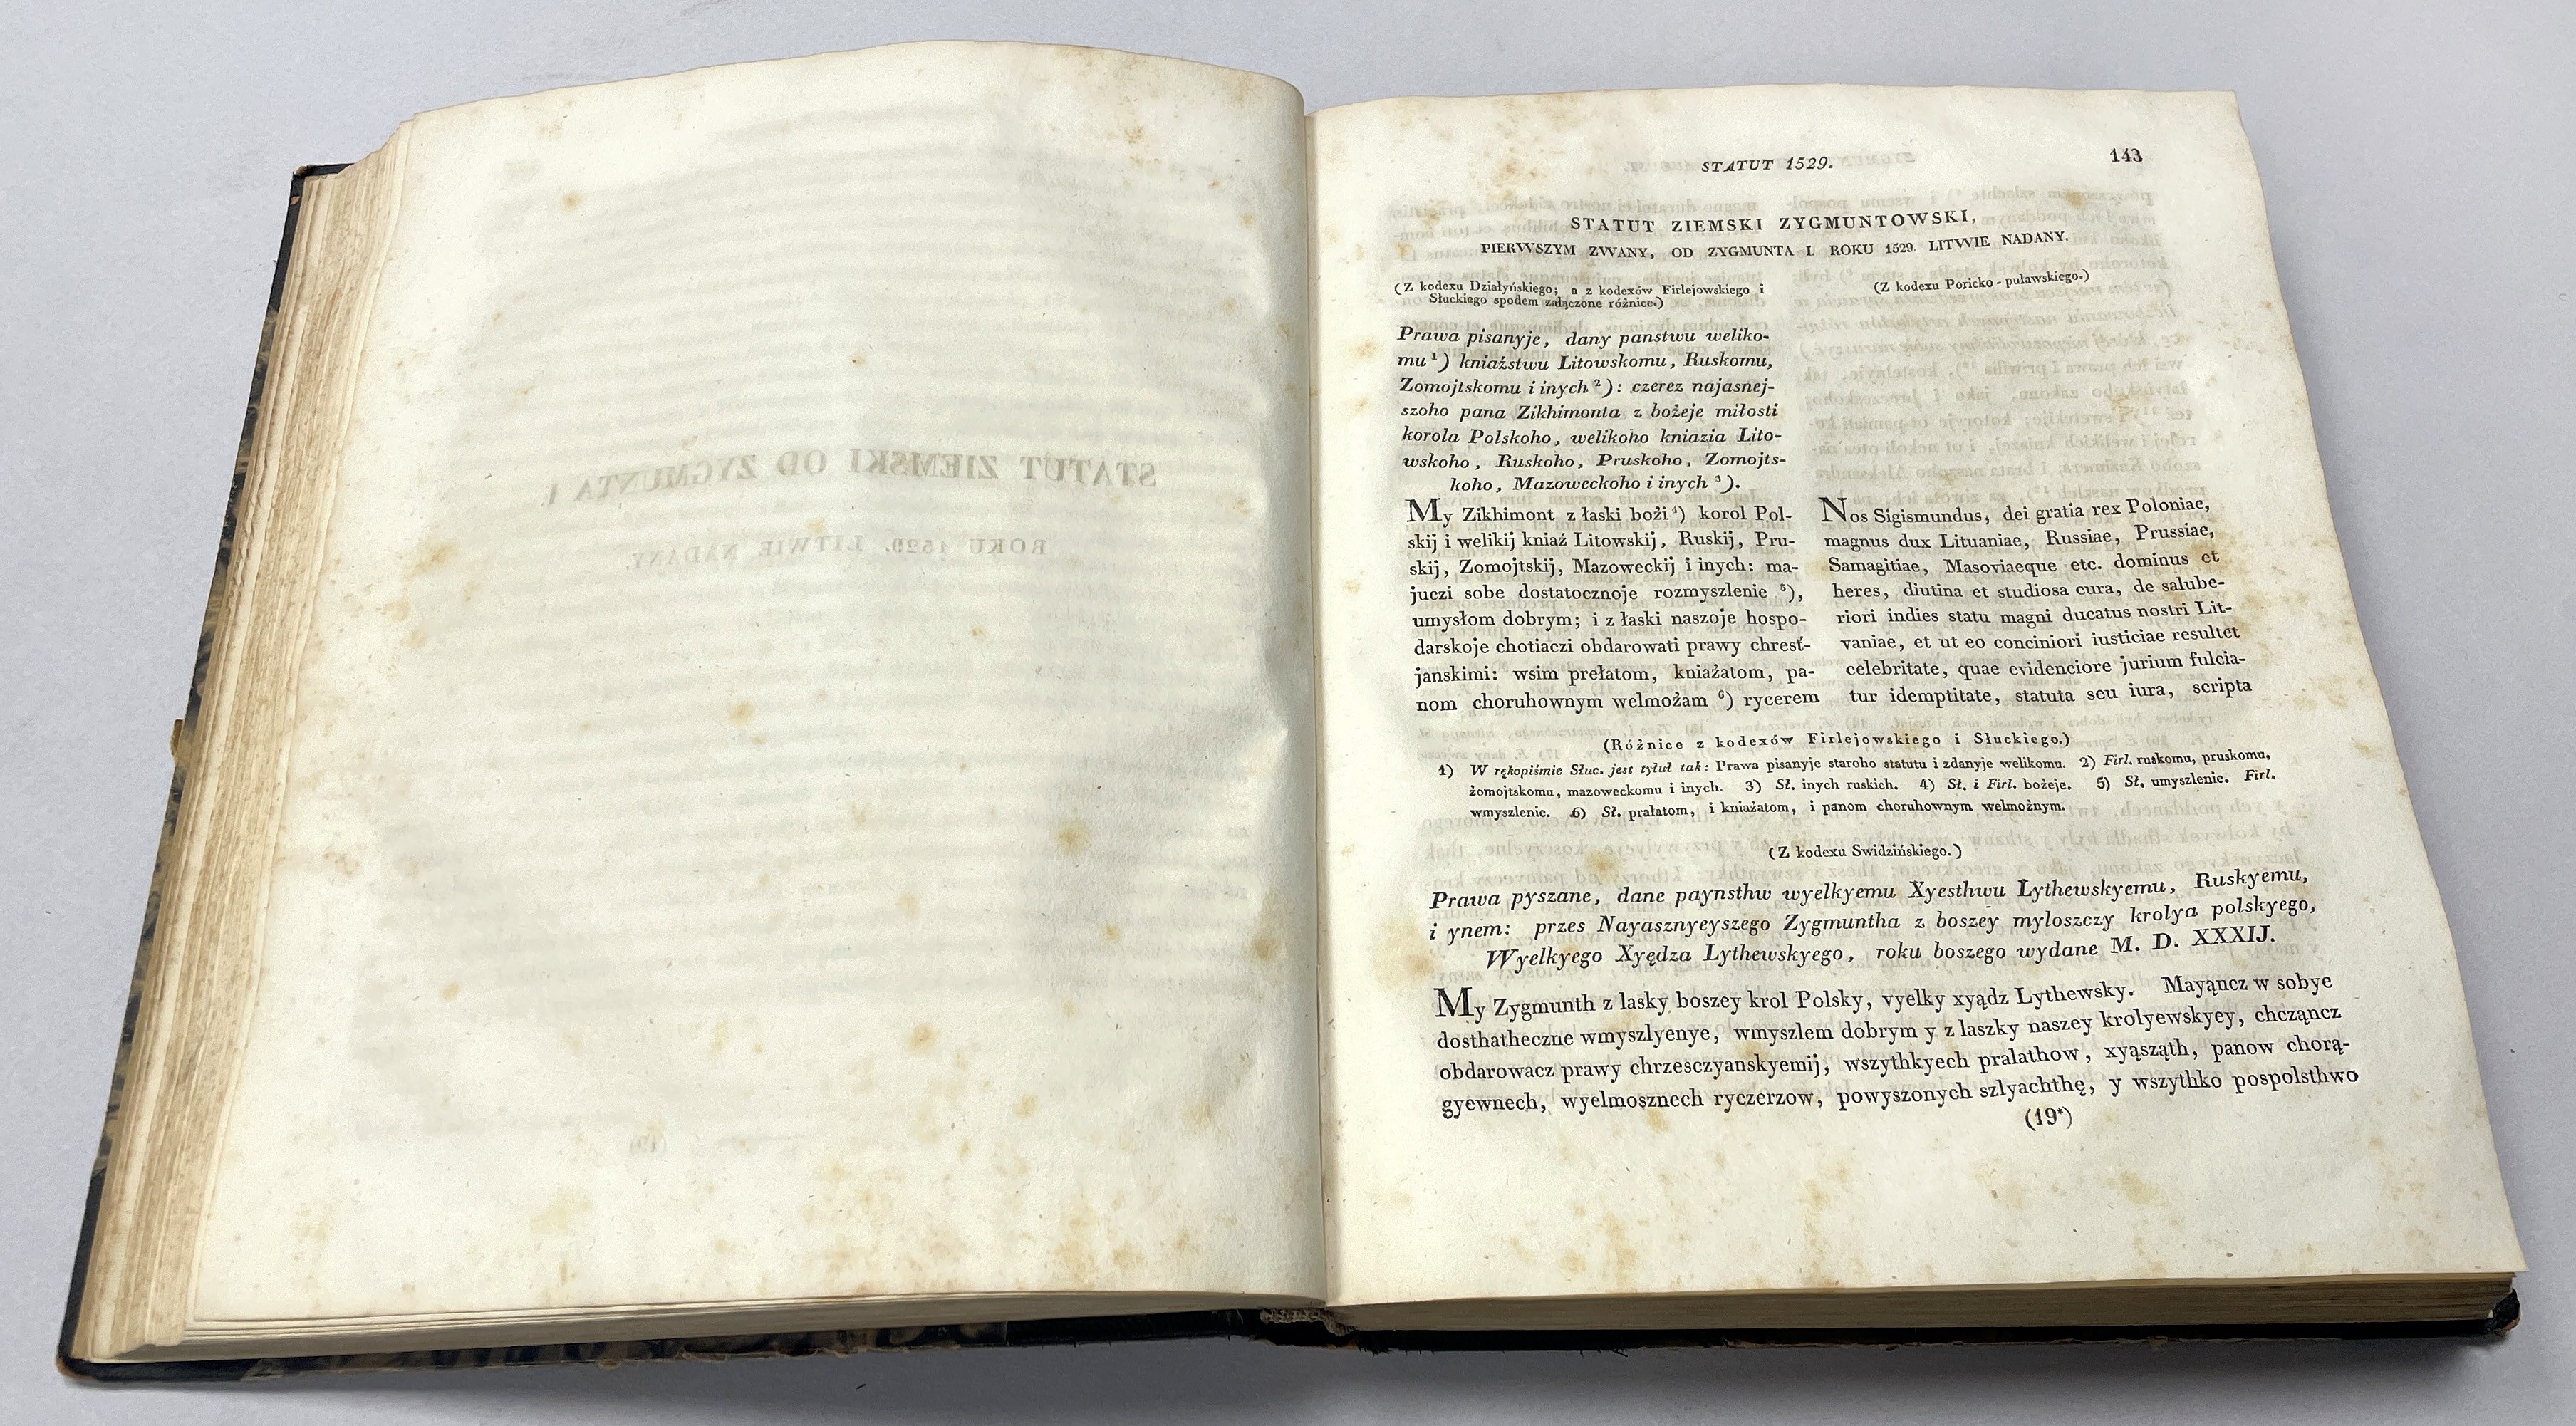 STATUT ZIEMSKI OD ZYGMUNTA I.
ROKU 1529. LITWIE NADANY.
STATUT 1529.
143
STATUT ZIEMSKI ZYGMUNTOWSKI,
PIERWSZYM ZWANY, OD ZYGMUNTA I. ROKU 1529. LITWIE NADANY.
(Z kodexu Działyńskiego; a z kodexów Firlejowskiego i
Słuckiego spodem załączone różnice.)
Prawa pisanyje, dany panstwu weliko-
mu ¹) kniaźstwu Litowskomu, Ruskomu,
Zomojtskomu i inych ²): czerez najasnej-
szoho pana Zikhimonta z bożeje miłosti
korola Polskoho, welikoho kniazia Lito-
wskoho, Ruskoho, Pruskoho, Zomojts-
koho, Mazoweckoho i inych ³).
My Zikhimont z łaski boži ⁴) korol Pol-
skij i welikij kniaź Litowskij, Ruskij, Pru-
skij, Zomojtskij, Mazoweckij i inych: ma-
juczi sobe dostatocznoje rozmyszlenie ⁵),
umysłom dobrym; i z łaski naszoje hospo-
darskoje chotiaczi obdarowati prawy chrest́-
janskimi: wsim prełatom, kniażatom, pa-
nom choruhownym welmożam ⁶) rycerem
(Z kodexu Poricko-puławskiego.)
Nos Sigismundus, dei gratia rex Poloniae,
magnus dux Lituaniae, Russiae, Prussiae,
Samagitiae, Masoviaeque etc. dominus et
heres, diutina et studiosa cura, de salube-
riori indies statu magni ducatus nostri Lit-
vaniae, et ut eo conciniori iusticiae resultet
celebritate, quae evidenciore jurium fulcia-
tur idemptitate, statuta seu iura, scripta
(Różnice z kodexów Firlejowskiego i Słuckiego.)
1) W rękopiśmie Słuc. jest tytuł tak: Prawa pisanyje staroho statutu i zdanyje welikomu. 2) Firl. ruskomu, pruskomu,
żomojtskomu, mazoweckomu i inych. 3) Sł. inych ruskich. 4) Sł. i Firl. bożeje. 5) Sł. umyszlenie. Firl.
wmyszlenie. 6) Sł. prałatom, i kniażatom, i panom choruhownym welmożnym.
(Z kodexu Swidzińskiego.)
Prawa pyszane, dane paynsthw wyelkyemu Xyesthwu Lythewskyemu, Ruskyemu,
i ynem: przes Nayasznyeyszego Zygmuntha z boszey myloszczy krolya polskyego,
Wyelkyego Xyędza Lythewskyego, roku boszego wydane M. D. XXXIJ.
My Zygmunth z lasky boszey krol Polsky, vyelky xyądz Lythewsky. Mayąncz w sobye
dosthatheczne wmyszlyenye, wmyszlem dobrym y z laszky naszey krolyewskyey, chcząncz
obdarowacz prawy chrzesczyanskyemij, wszythkyech pralathow, xyąsząth, panow chorą-
gyewnech, wyelmosznech ryczerzow, powyszonych szlyachthę, y wszythko pospolsthwo
(19*)